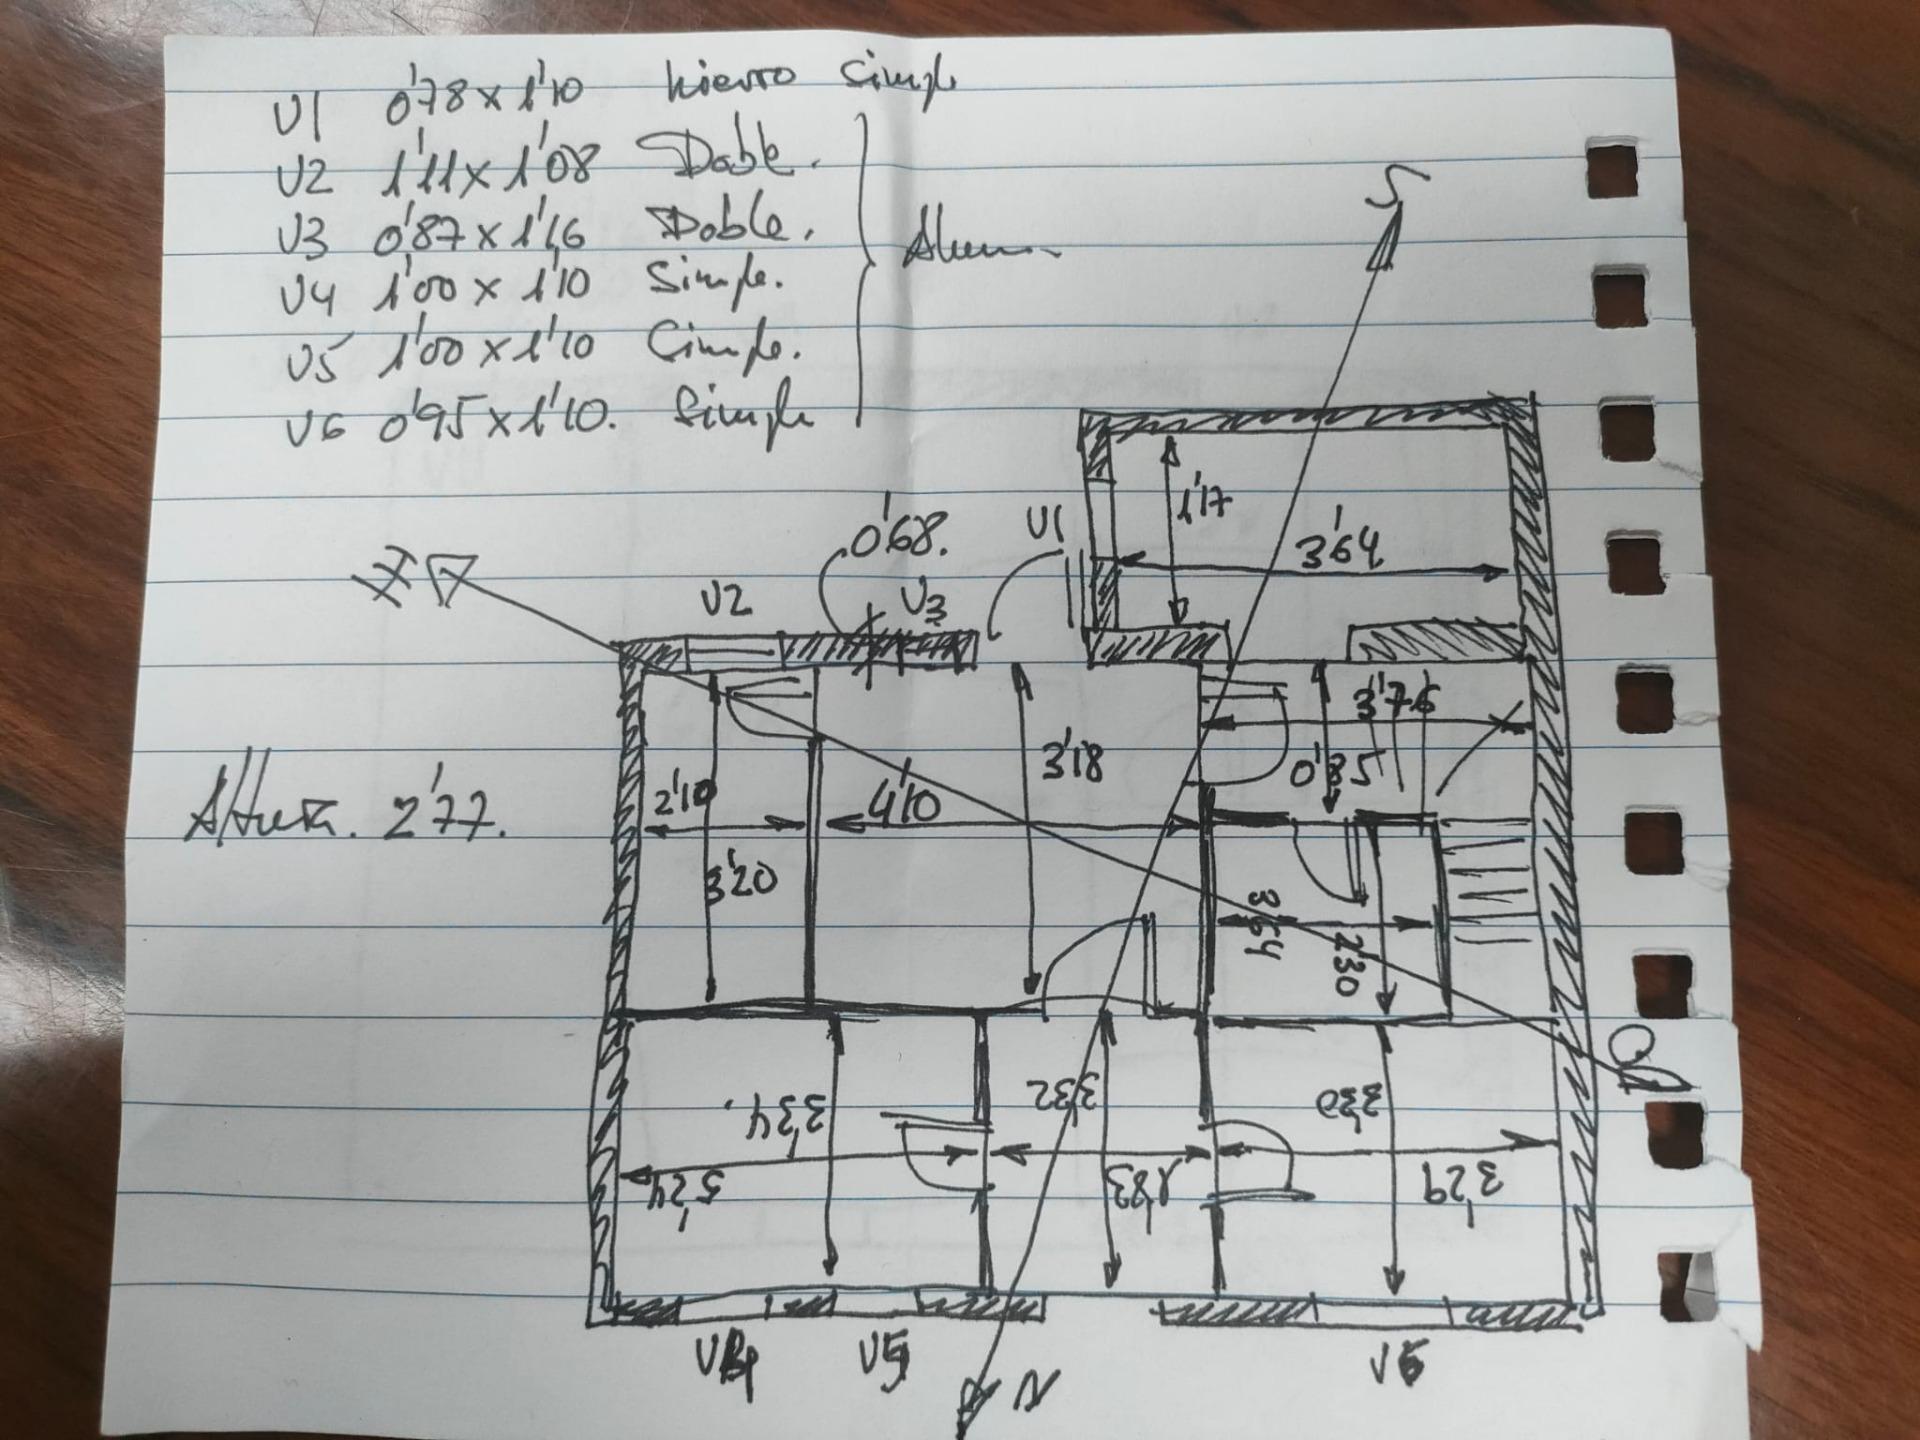 V1 0'78 x 1'10 hierro simple
V2 1'11 x 1'08 Doble.
V3 0'87 x 1'16 Doble.
V4 1'00 x 1'10 Simple.
V5 1'00 x 1'10 Simple.
V6 0'95 x 1'10. Simple
Alum.
S
1'17
3'64
0'68.
V1
V2
V3
E
3'76
0'85
3'18
2'10
4'10
Altura. 2'77.
3'20
3'64
2'30
O
3'34.
3'32
3'30
5'24
1'83
3'29
V4
V5
V6
N